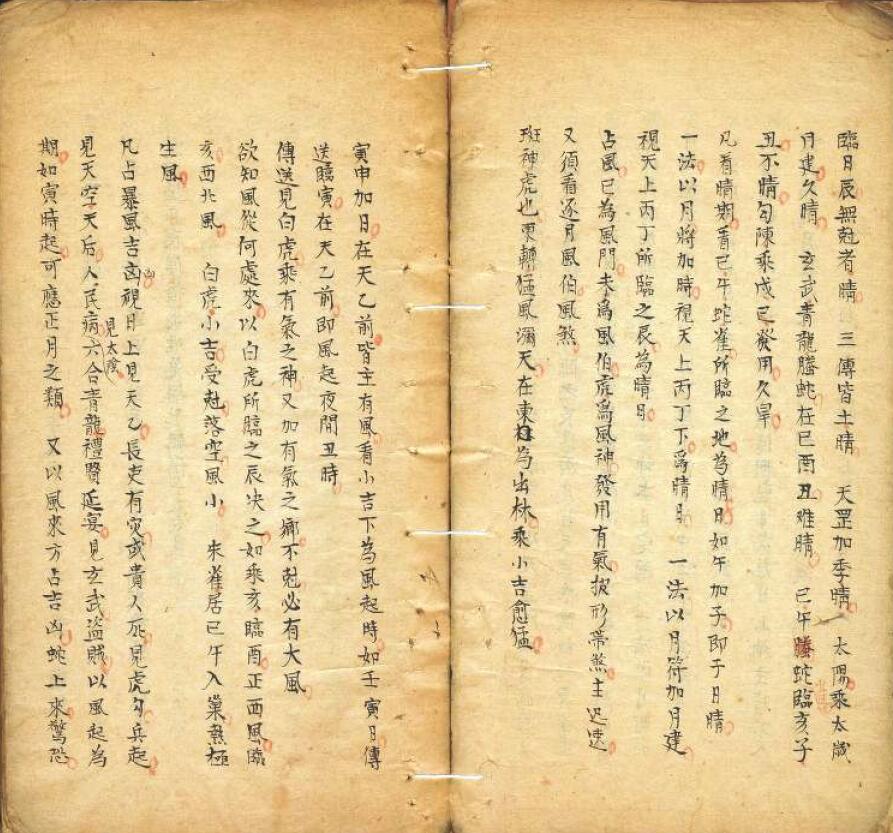 臨日辰無尅者晴 三傳皆土晴 天罡加季晴 太陽乘太歲
月建久晴 玄武青龍螣蛇在巳酉丑难晴 巳午螣蛇臨亥子
丑不晴勾陳乘戊己發用久旱
凡看晴期看巳午蛇雀所臨之地為晴日如午加子即子日晴
一法以月將加時視天上丙丁下為晴日 一法以月符加月建
視天上丙丁所臨之辰為晴日
占風巳為風門未為風伯虎為風神發用有氣披形帶煞主迅速
又須看逐月風伯風煞
班神虎也東轉猛風瀰天在東為出林乘小吉愈猛
寅申加日在天乙前皆主有風看小吉下為風起時如壬寅日傳
送臨寅在天乙前即風起夜間丑時
傳送見白虎乘有氣之神又加有氣之鄉不尅必有大風
欲知風從何處來以白虎所臨之辰决之如乘亥臨酉正西風臨
亥西北風 白虎小吉受尅落空風小 朱雀居巳午入巢熱極
生風
凡占暴風吉凶視日上見天乙長吏有灾或貴人死見虎勾兵起
見天空天后人民病六合青龍禮賢延宴見玄武盜賊以風起為
見太陰
期如寅時起可應正月之類 又以風來方占吉凶蛇上來驚恐